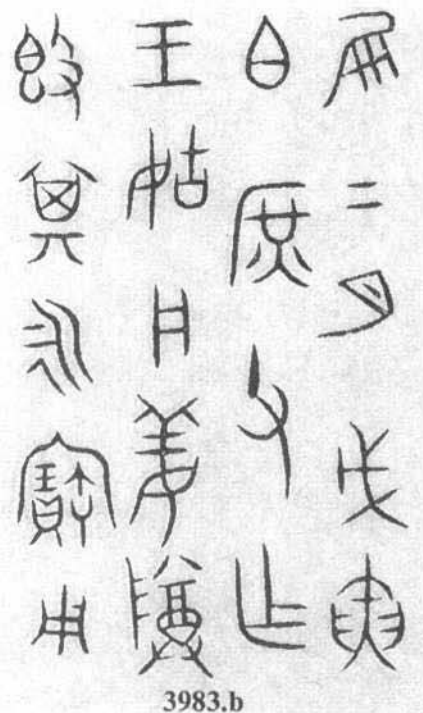 隹二月戊寅
白庶父乍
王姑凡姜尊
𣪘其永寶用
3983.b